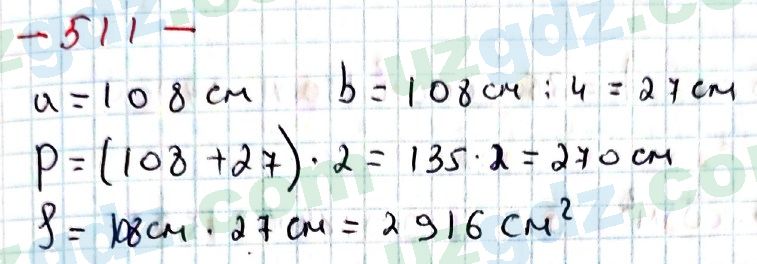 - 511 -
a = 108 см b = 108 см : 4 = 27 см
P = (108 + 27) · 2 = 135 · 2 = 270 см
S = 108 см · 27 см = 2916 см²
uzgdz.com